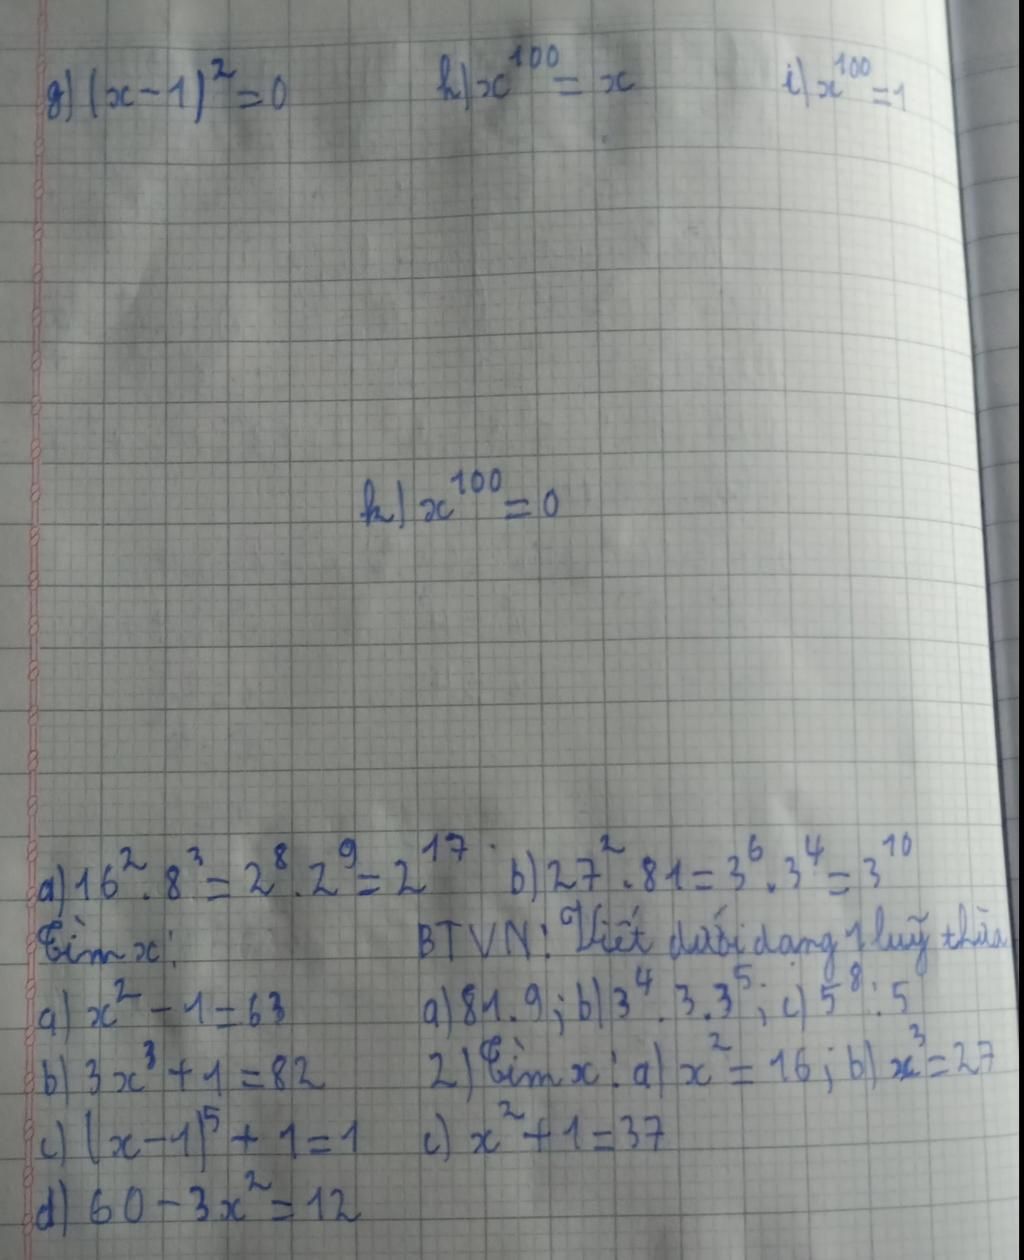 g) (x-1)² = 0 h) x¹⁰⁰ = x i) x¹⁰⁰ = 1
k) x¹⁰⁰ = 0
a) 16² . 8³ = 2⁸ . 2⁹ = 2¹⁷ . b) 27² . 81 = 3⁶ . 3⁴ = 3¹⁰
Tìm x: BTVN: Viết dưới dạng 1 luỹ thừa
a) x² - 1 = 63 a) 81 . 9 ; b) 3⁴ . 3 . 3⁵ ; c) 5⁸ : 5
b) 3x³ + 1 = 82 2) Tìm x: a) x² = 16 ; b) x³ = 27
c) (x-1)⁵ + 1 = 1 c) x² + 1 = 37
d) 60 - 3x² = 12